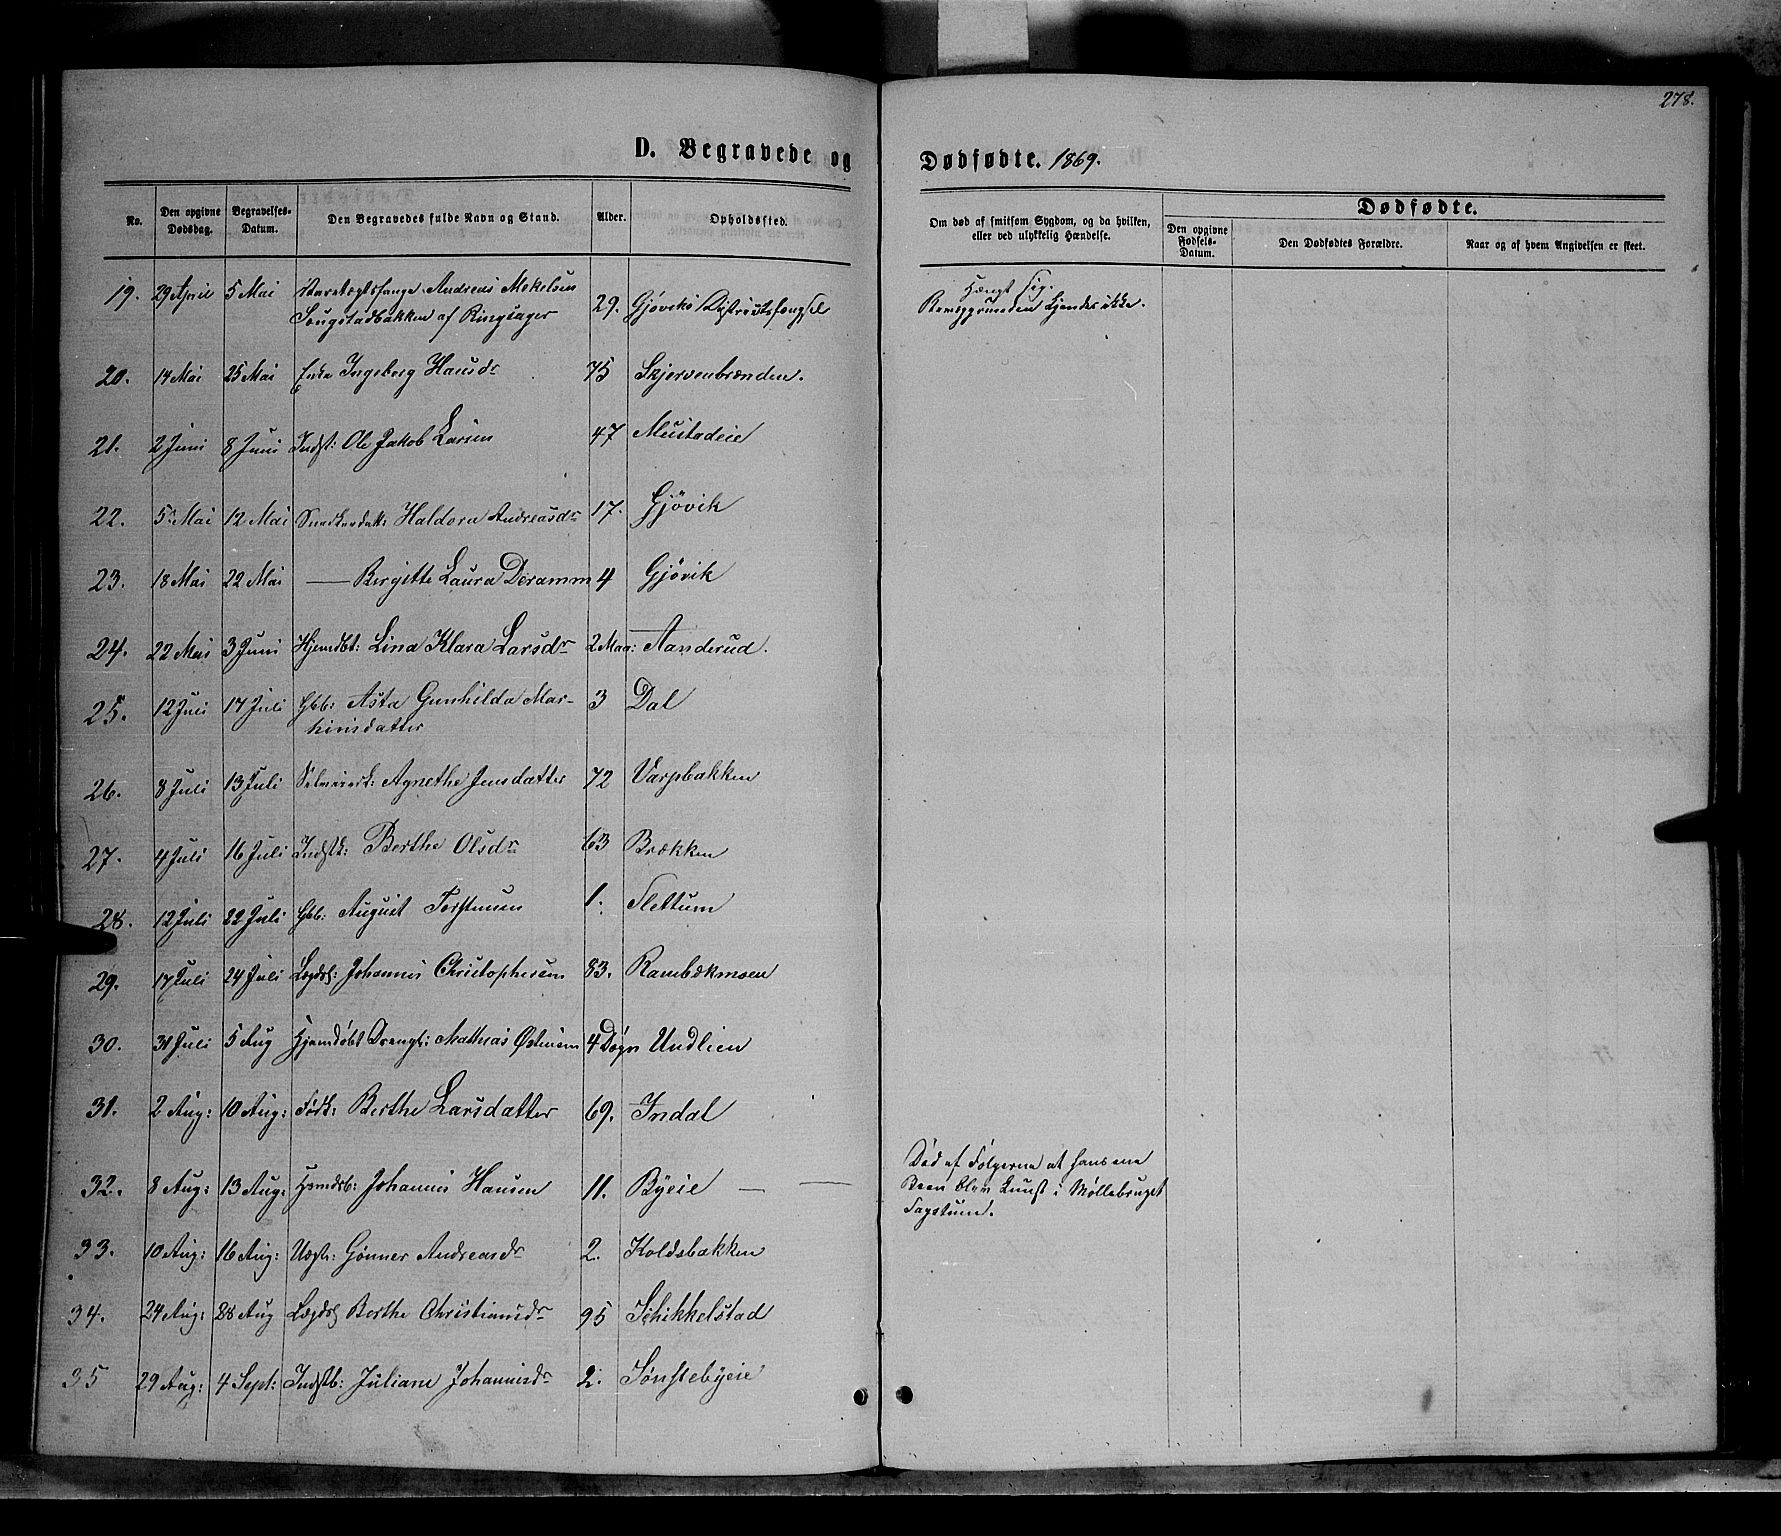 278.
D. Begravede og Dødfødte. 1869.
No. Den opgivne Dødsdag. Begravelses-Datum. Den Begravedes fulde Navn og Stand. Alder. Opholdssted. Om død af smitsom Sygdom, og da hvilken, eller ved ulykkelig Hændelse. Dødfødte.
Den opgivne Fødsels-Datum. Den Dødfødtes Forældre. Naar og af hvem Angivelsen er skeet.
19. 29 April 5 Mai Varetægtsfange Andreas Mekelsen 29. Gjøviks Distriktsfængsel Hængt sig.
Sougstadbakken af Ringsager Bevæggrunden kjendes ikke.
20. 14 Mai 25 Mai Enke Ingeborg Hansdr 75 Skjervenbrænden.
21. 2 Juni 8 Juni Indst: Ole Jakob Larsen 47 Mustadeie
22. 5 Mai 12 Mai Snedkerdatt: Haldora Andreasdr 17. Gjøvik
23. 18 Mai 22 Mai — Birgitte Laura Deramm 4 Gjøvik
24. 22 Mai 3 Juni Hjemdbt: Lina Klara Larsdr 2 Maa: Aanderud.
25. 12 Juli 17 Juli Gbb: Asta Gunhilda Mar-
hinsdatter 3 Dal
26. 8 Juli 13 Juli Agnethe Jensdatter 72 Varpbakken
27. 4 Juli 16 Juli Indstk: Berthe Olsdr 63 Brækken
28. 12 Juli 22 Juli Gbb: August Torstensen 1. Flettum
29. 17 Juli 24 Juli Lægdsl Johannes Christophersen 83. Rambækmoen
30. 31 Juli 5 Aug Hjemdøbt Drengb: Mathias Østensen 4 Døgn Undlien
31. 2 Aug: 10 Aug: Fødk: Berthe Larsdatter 69. Indal
32. 8 Aug: 13 Aug: Johannes Hansen 11. Byeie — — Død af Følgerne at hans ene
Been blev knust i Møllebruget
Fagstum.
33. 10 Aug: 16 Aug: Gønner Andreasdr 2. Koldsbækken
34. 24 Aug: 28 Aug Lægdsl Berthe Christiansdr 95 Schikkelstad
35 29 Aug: 4 Sept: Indstb: Juliane Johannesdr 2. Sønstebyeie